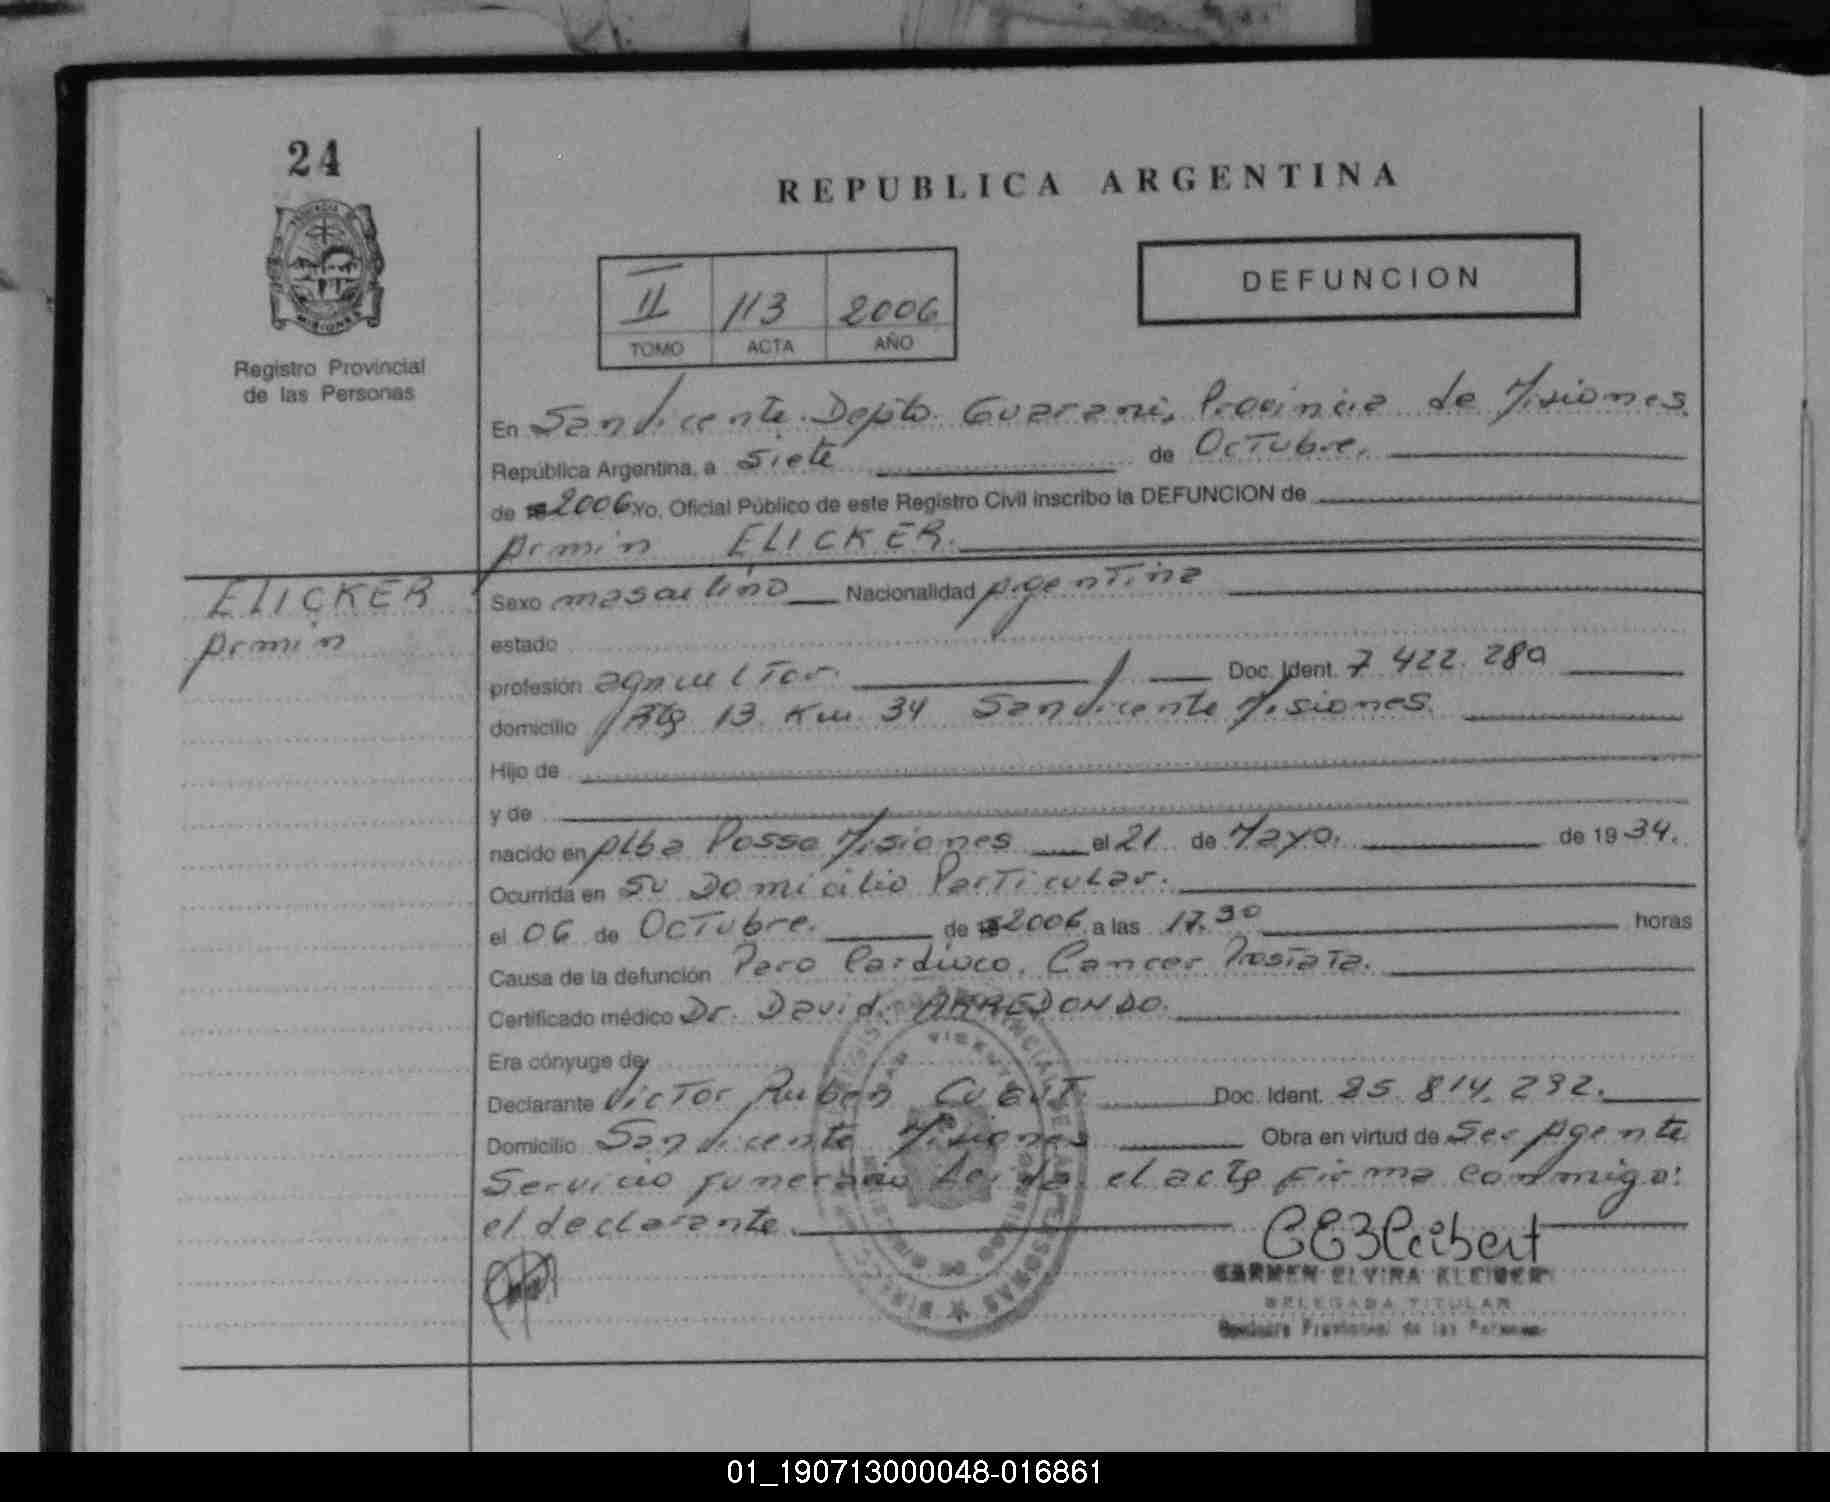 24
REPUBLICA ARGENTINA
PROVINCIA DE
MISIONES
Registro Provincial
de las Personas
II 113 2006
TOMO ACTA AÑO
DEFUNCION
En San Vicente. Depto. Guarani, Provincia de Misiones
República Argentina, a siete de Octubre.
de 2006 Yo, Oficial Público de este Registro Civil inscribo la DEFUNCION de
Armin ELICKER.
ELICKER
Armin
Sexo masculino Nacionalidad Argentina
estado
profesión agricultor. Doc. Ident. 7.422.280
domicilio Rta 13 Km 34 San Vicente Misiones.
Hijo de
y de
nacido en Alba Posse Misiones el 21 de Mayo. de 19 34.
Ocurrida en su Domicilio Particular.
el 06 de Octubre. de 2006 a las 17.30 horas
Causa de la defunción Paro Cardiaco, Cancer Prostata.
Certificado médico Dr. David ARREDONDO.
Era cónyuge de
Declarante Victor Ruben Doc. Ident. 25.814.292.
Domicilio San Vicente Misiones Obra en virtud de Ser Agente
Servicio funerario Leida el acta Firma conmigo:
el declarante.
CARMEN ELVIRA
DELEGADA TITULAR
Registro Provincial de las Personas
01_190713000048-016861